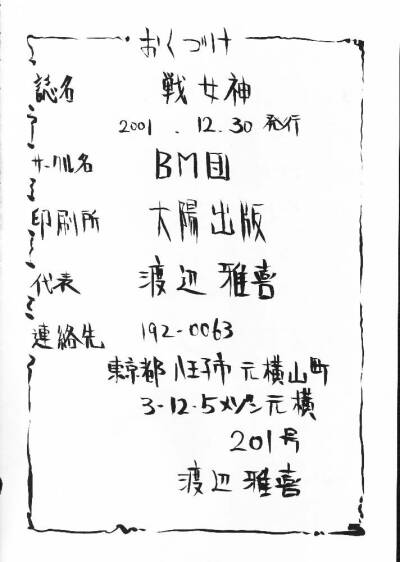 おくづけ
誌名 戦女神
2001.12.30 発行
サークル名 BM団
印刷所 太陽出版
代表 渡辺雅喜
連絡先 192-0063
東京都八王子市元横山町
3-12-5メゾン元横
201号
渡辺雅喜